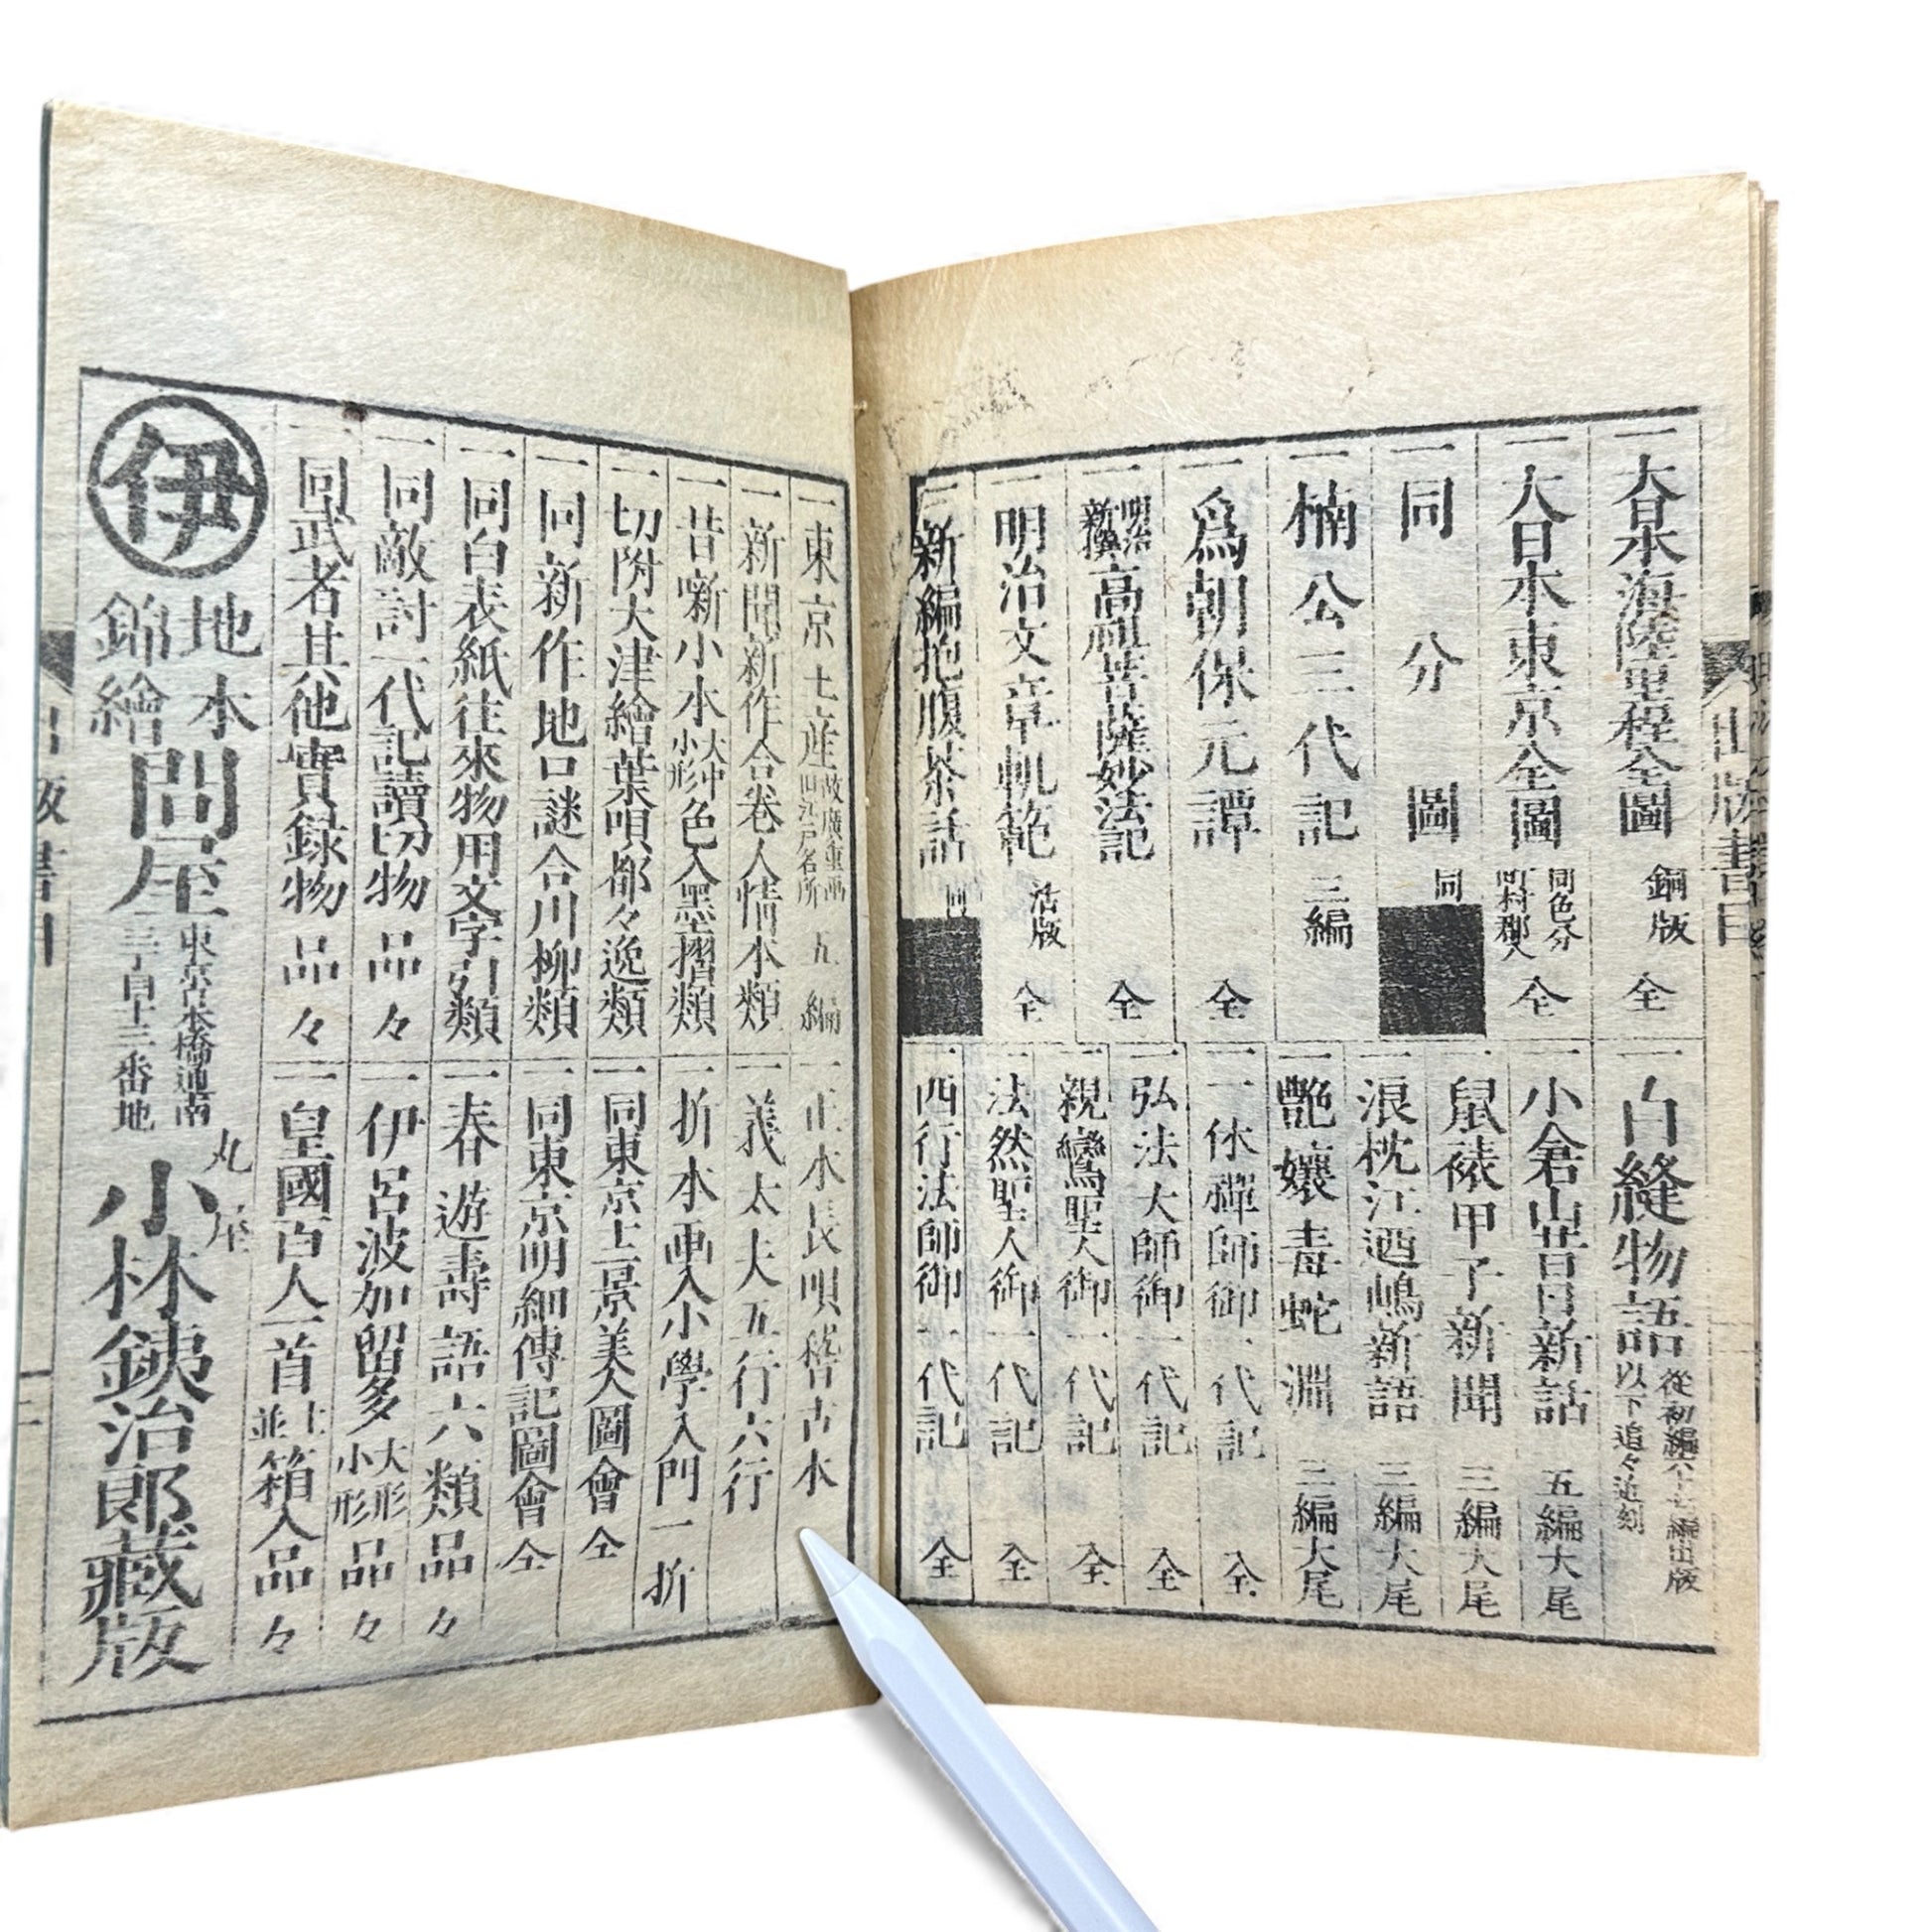 一大日本海陸里程全圖 銅版 全
一大日本東京全圖 同色分 町村郡入 全
一同分圖 同
一楠公三代記 三編
一爲朝保元譚 全
一明治新撰高祖菩薩妙法記 全
一明治文章軌範 活版 全
一新編抱腹茶話 同
一白縫物語 從初編六十七編出版 以下追々近刻
一小倉山昔日新話 五編大尾
一鼠裱甲子新聞 三編大尾
一浪枕江迺嶋新語 三編大尾
一艶孃毒蛇淵 三編大尾
一一休禪師御一代記 全
一弘法大師御一代記 全
一親鸞聖人御一代記 全
一法然聖人御一代記 全
一西行法師御一代記 全
出版書目
一東京土産 故廣重画 旧江戸名所 五編
一新聞新作合巻人情本類
一昔噺小本 大中小形 色入墨摺類
一切附大津繪葉唄都々逸類
一同新作地口謎合川柳類
一同白表紙往來物用文字引類
一同敵討一代記讀切物品々
一同武者其他實録物品々
一正本長唄稽古本
一義太夫五行六行
一折本画入小學入門一折
一同東京十二景美人圖會 全
一同東京明細傳記圖會 全
一春遊壽語六類品々
一伊呂波加留多 大形小形 品々
一皇國百人一首 上並 箱入品々
伊
地本
錦繪
問屋
東京日本橋通南
三丁目十三番地
丸屋
小林銕治郎藏版
出版書目